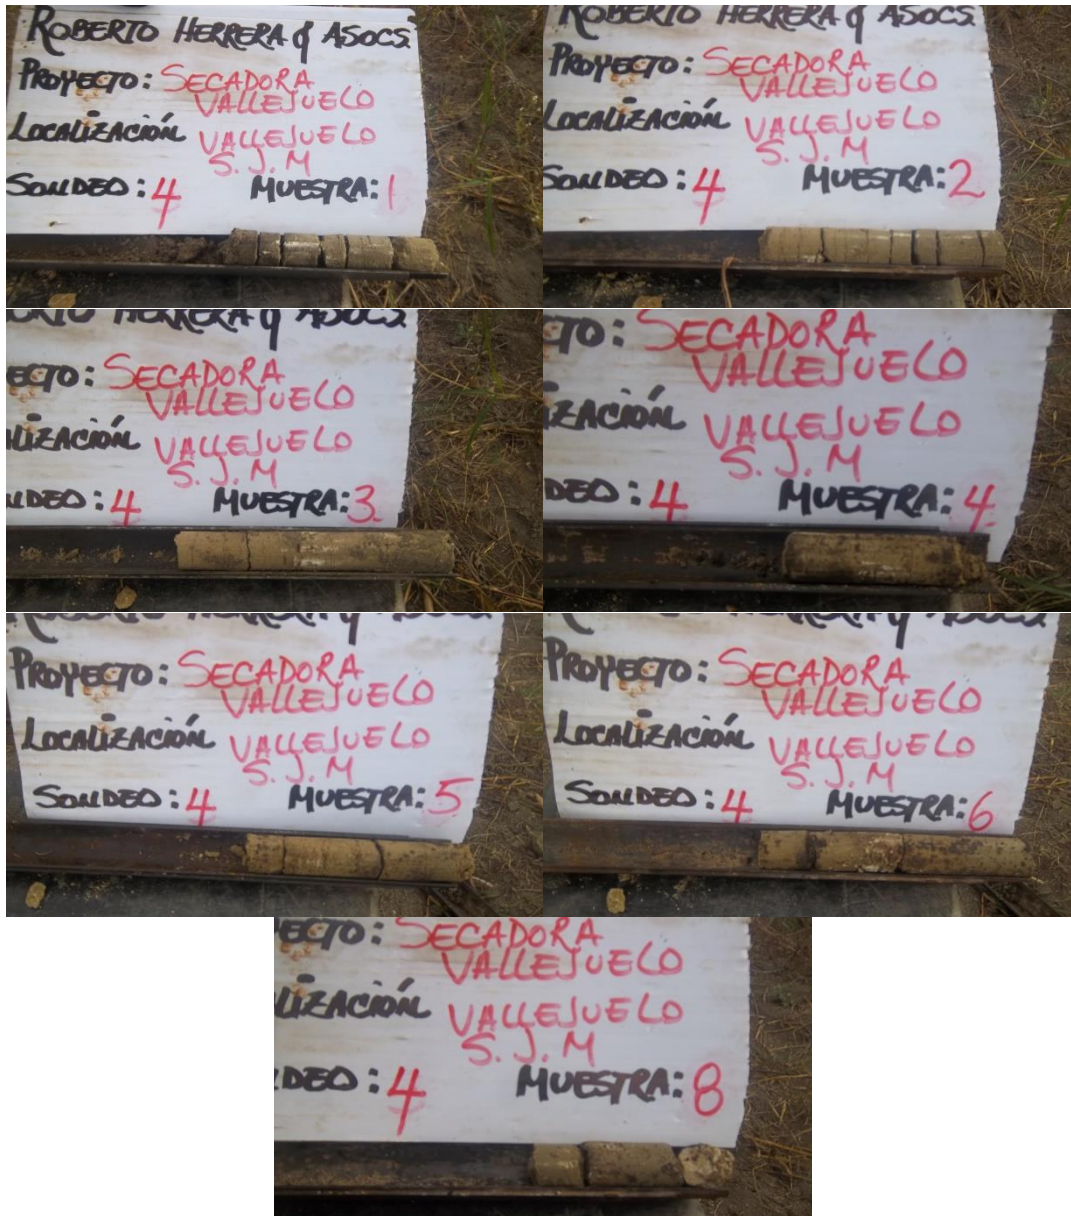 ROBERTO HERRERA & ASOCS.
PROYECTO: SECADORA
VALLEJUELO
LOCALIZACIÓN VALLEJUELO
S.J.M
SONDEO: 4 MUESTRA: 1
ROBERTO HERRERA & ASOCS.
PROYECTO: SECADORA
VALLEJUELO
LOCALIZACIÓN VALLEJUELO
S.J.M
SONDEO: 4 MUESTRA: 2
ERTO HERRERA & ASOCS.
ECTO: SECADORA
VALLEJUELO
ALIZACIÓN VALLEJUELO
S.J.M
NDEO: 4 MUESTRA: 3
CTO: SECADORA
VALLEJUELO
IZACIÓN VALLEJUELO
S.J.M
DEO: 4 MUESTRA: 4
ROBERTO HERRERA &
PROYECTO: SECADORA
VALLEJUELO
LOCALIZACIÓN VALLEJUELO
S.J.M
SONDEO: 4 MUESTRA: 5
PROYECTO: SECADORA
VALLEJUELO
LOCALIZACIÓN VALLEJUELO
S.J.M
SONDEO: 4 MUESTRA: 6
ECTO: SECADORA
VALLEJUELO
ALIZACIÓN VALLEJUELO
S.J.M
DEO: 4 MUESTRA: 8